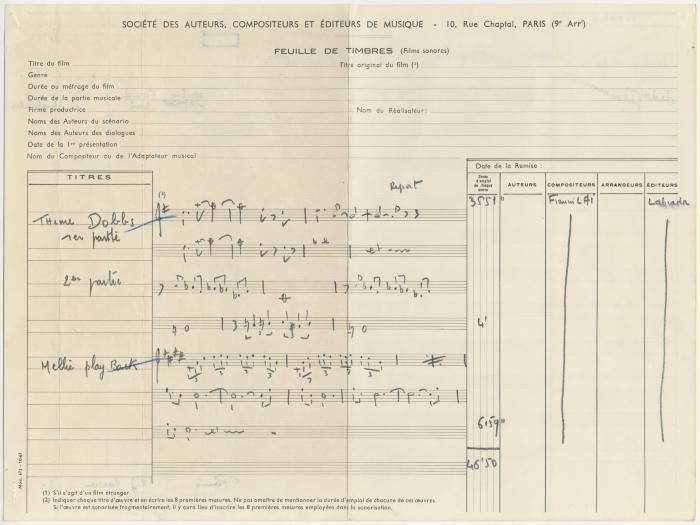 SOCIÉTÉ DES AUTEURS, COMPOSITEURS ET ÉDITEURS DE MUSIQUE - 10, Rue Chaptal, PARIS (9e Arrt)
FEUILLE DE TIMBRES (Films sonores)
Titre du film
Titre original du film (1)
Genre
Durée ou métrage du film
Durée de la partie musicale
Firme productrice
Nom du Réalisateur:
Noms des Auteurs du scénario
Noms des Auteurs des dialogues
Date de la 1re présentation
Nom du Compositeur ou de l'Adaptateur musical
Date de la Remise :
TITRES
(2)
Durée d'emploi de chaque œuvre
AUTEURS
COMPOSITEURS
ARRANGEURS
ÉDITEURS
Report
35'51"
Francis LAI
Labrador
Theme Dobbs
1er partie
et
2em partie
4'
Mellie play Back
6'59"
et
46'50
(1) S'il s'agit d'un film étranger
(2) Indiquer chaque titre d'œuvre et en écrire les 8 premières mesures. Ne pas omettre de mentionner la durée d'emploi de chacune de ces œuvres.
Si l'œuvre est sonorisée fragmentairement, il y aura lieu d'inscrire les 8 premières mesures employées dans la sonorisation.